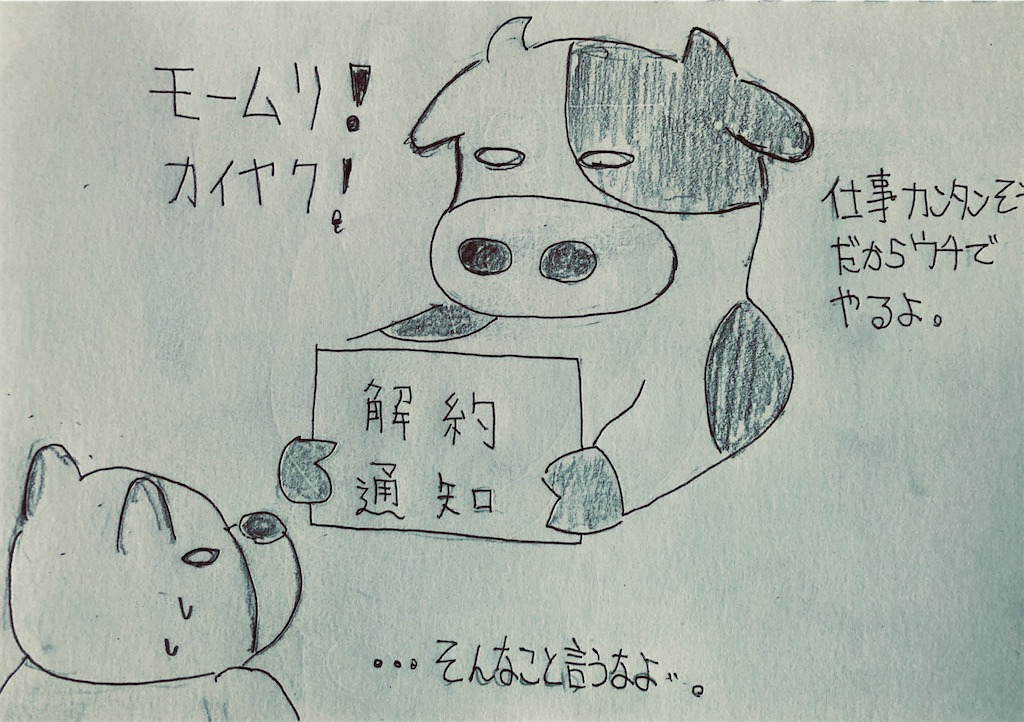 モームリ!
カイヤク!
仕事カンタンそう
だからウチで
やるよ。
解約
通知
…そんなこと言うなよ…。